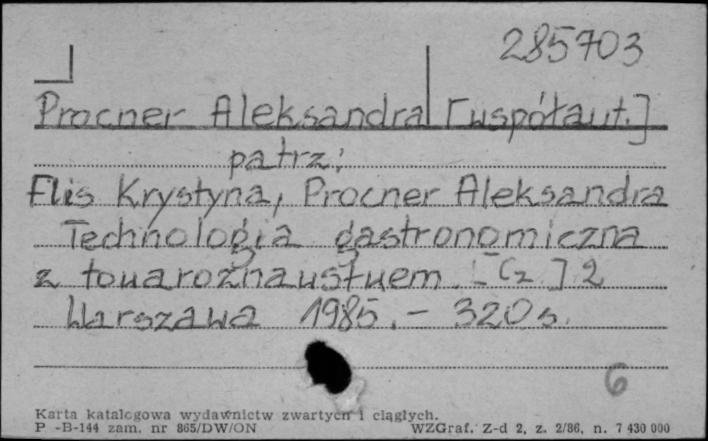 285703
Procner Aleksandra [współaut.]
patrz:
Flis Krystyna, Procner Aleksandra
Technologia gastronomiczna
z towaroznawstwem. [Cz.] 2
Warszawa 1985. - 320 s.
6
Karta katalogowa wydawnictw zwartych i ciągłych.
P -B-144 zam. nr 865/DW/ON WZGraf. Z-d 2, z. 2/86, n. 7 430 000